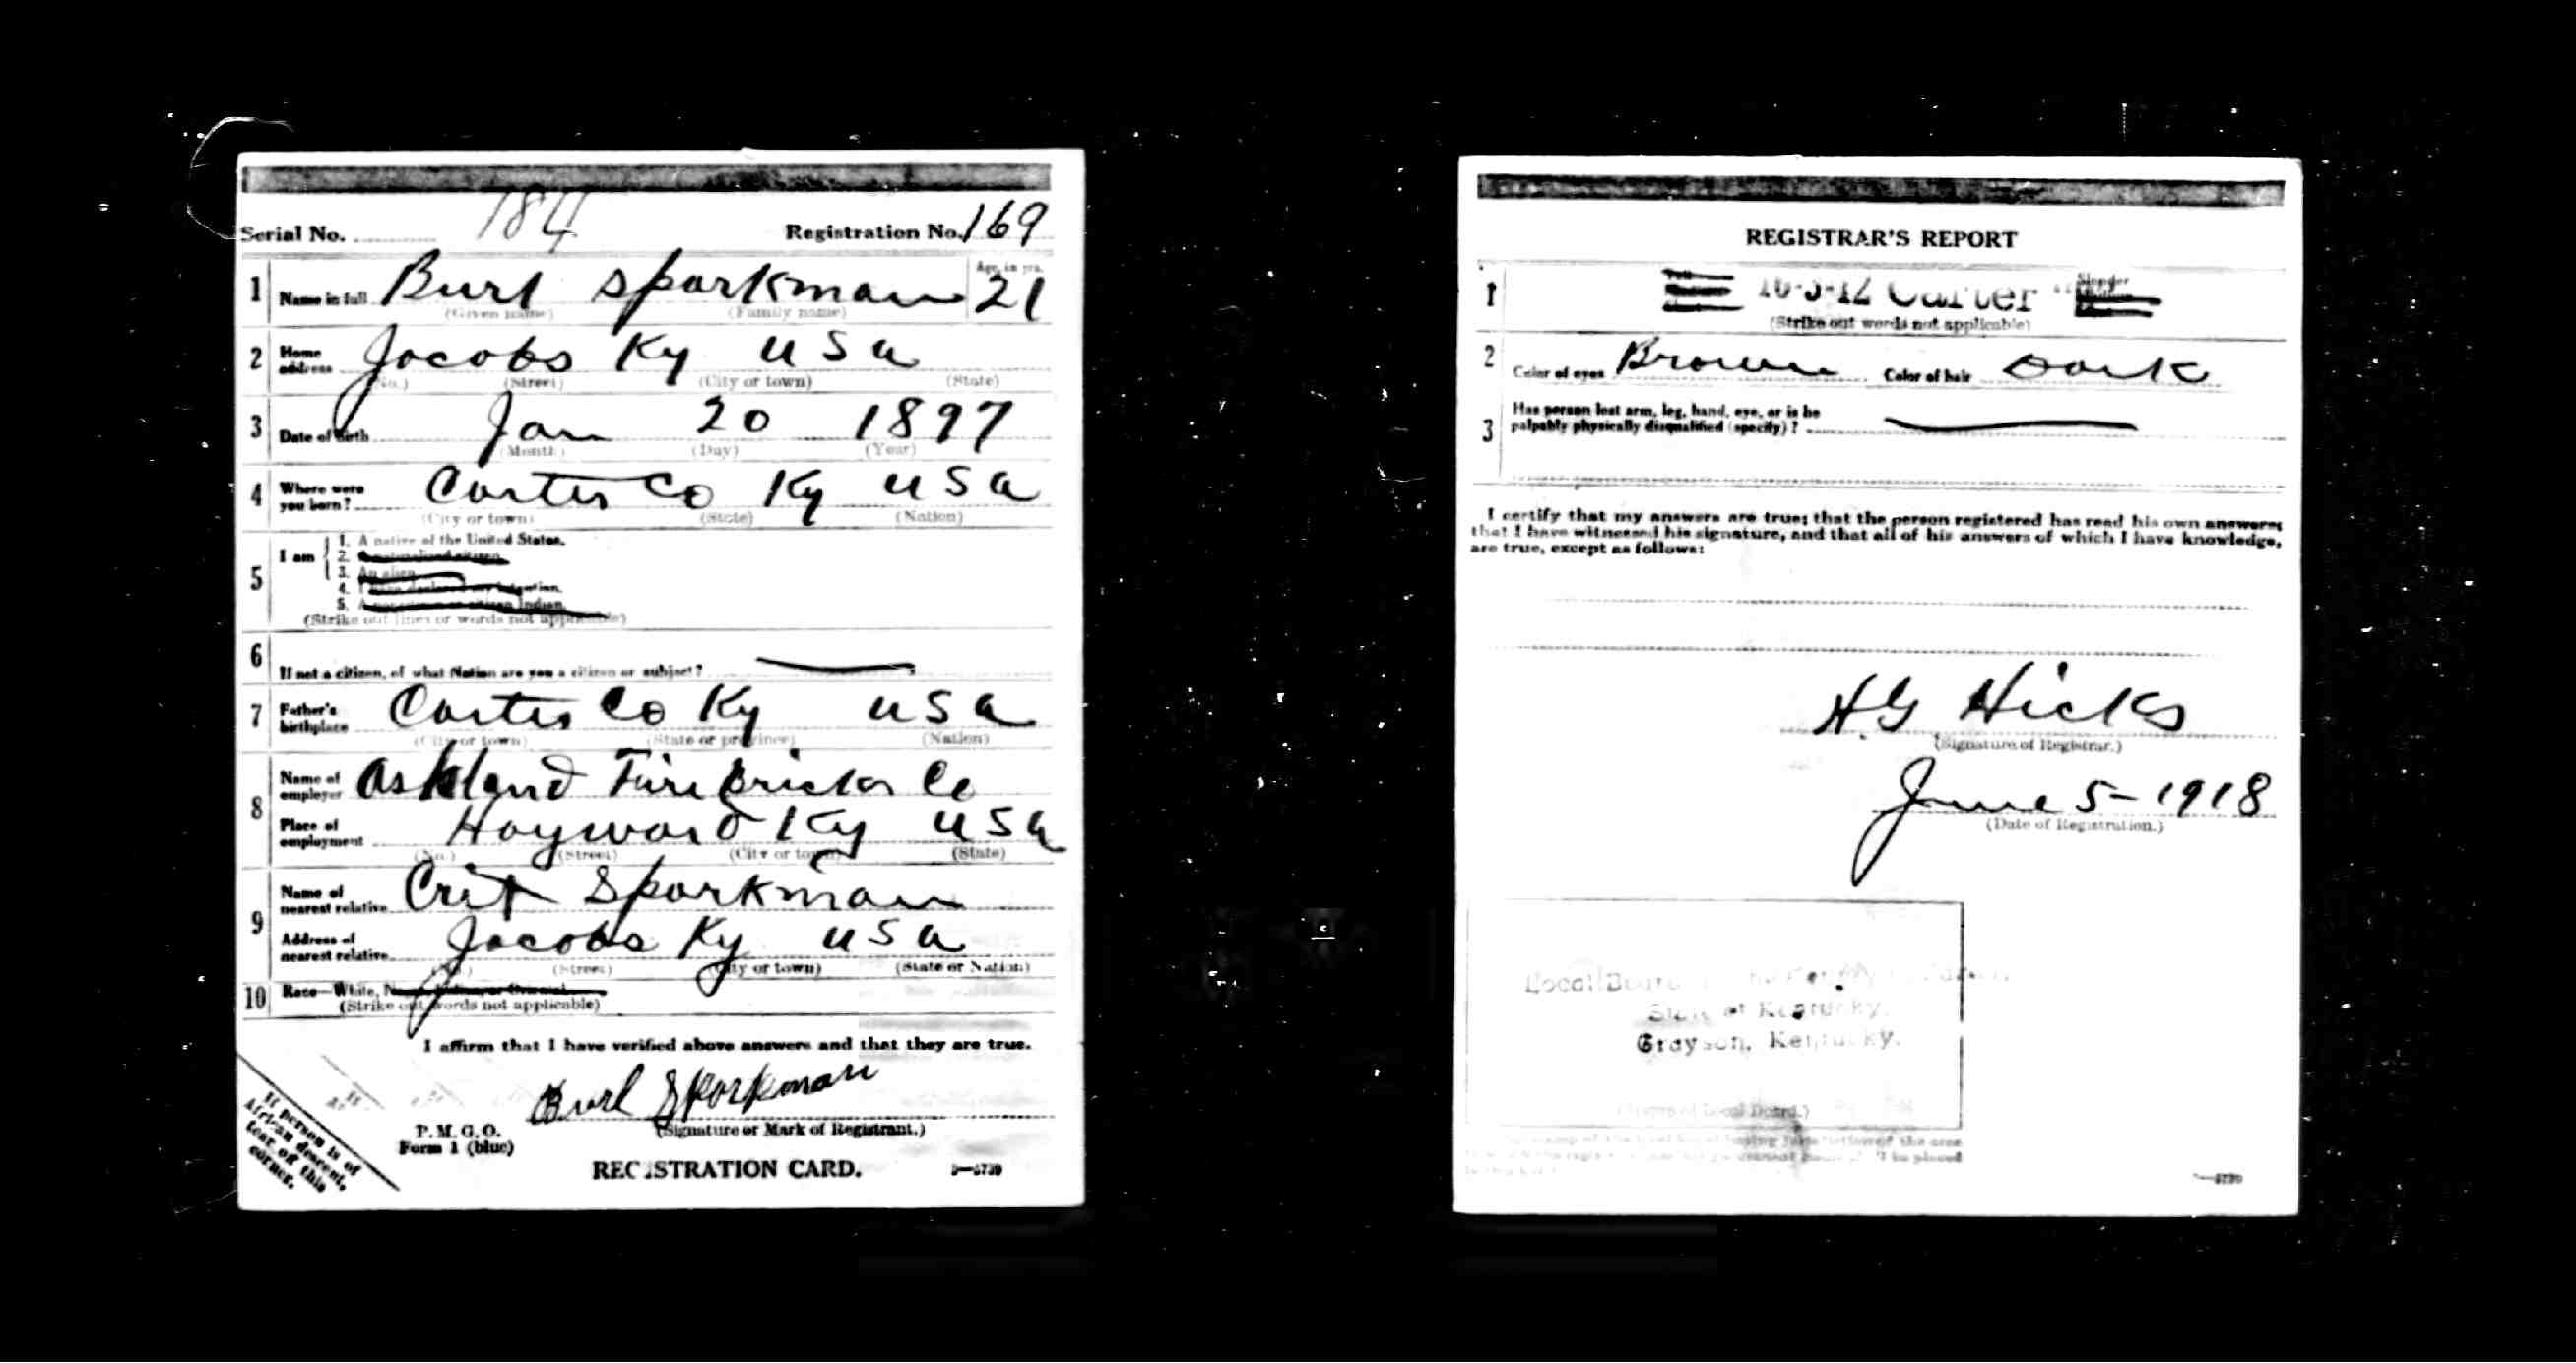 Serial No. 184 Registration No. 169
1 Name in full Burl Sparkman Age, in yrs. 21
(Given name) (Family name)
2 Home address Jacobs Ky USa
(No.) (Street) (City or town) (State)
3 Date of birth Jan 20 1897
(Month) (Day) (Year)
4 Where were you born? Carter Co Ky USa
(City or town) (State) (Nation)
5 I am 1. A native of the United States.
2. A naturalized citizen.
3. An alien.
4. I have declared my intention.
5. A noncitizen or citizen Indian.
(Strike out lines or words not applicable)
6 If not a citizen, of what Nation are you a citizen or subject?
7 Father's birthplace Carter Co Ky USa
(City or town) (State or province) (Nation)
8 Name of employer Ashland Fire Bricks Co
Place of employment Hayward Ky USa
(No.) (Street) (City or town) (State)
9 Name of nearest relative Crit Sparkman
Address of nearest relative Jacobs Ky USa
(No.) (Street) (City or town) (State or Nation)
10 Race—White,
(Strike out words not applicable)
I affirm that I have verified above answers and that they are true.
Burl Sparkman
(Signature or Mark of Registrant.)
P. M. G. O.
Form 1 (blue)
REGISTRATION CARD.
If person is of
African descent,
tear off this
corner.
REGISTRAR'S REPORT
1 16-3-12 Carter Slender
(Strike out words not applicable)
2 Color of eyes Brown Color of hair Dark
3 Has person lost arm, leg, hand, eye, or is he
palpably physically disqualified (specify)?
I certify that my answers are true; that the person registered has read his own answers;
that I have witnessed his signature, and that all of his answers of which I have knowledge,
are true, except as follows:
H.G Hicks
(Signature of Registrar.)
June 5-1918
(Date of Registration.)
Local Board
State of Kentucky.
Grayson, Kentucky.
(Stamp of Local Board.)